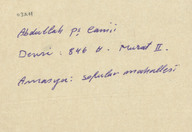 Abdullah Pş Camii
Devri : 846 H. Murat II.
Amasya : sofular mahallesi